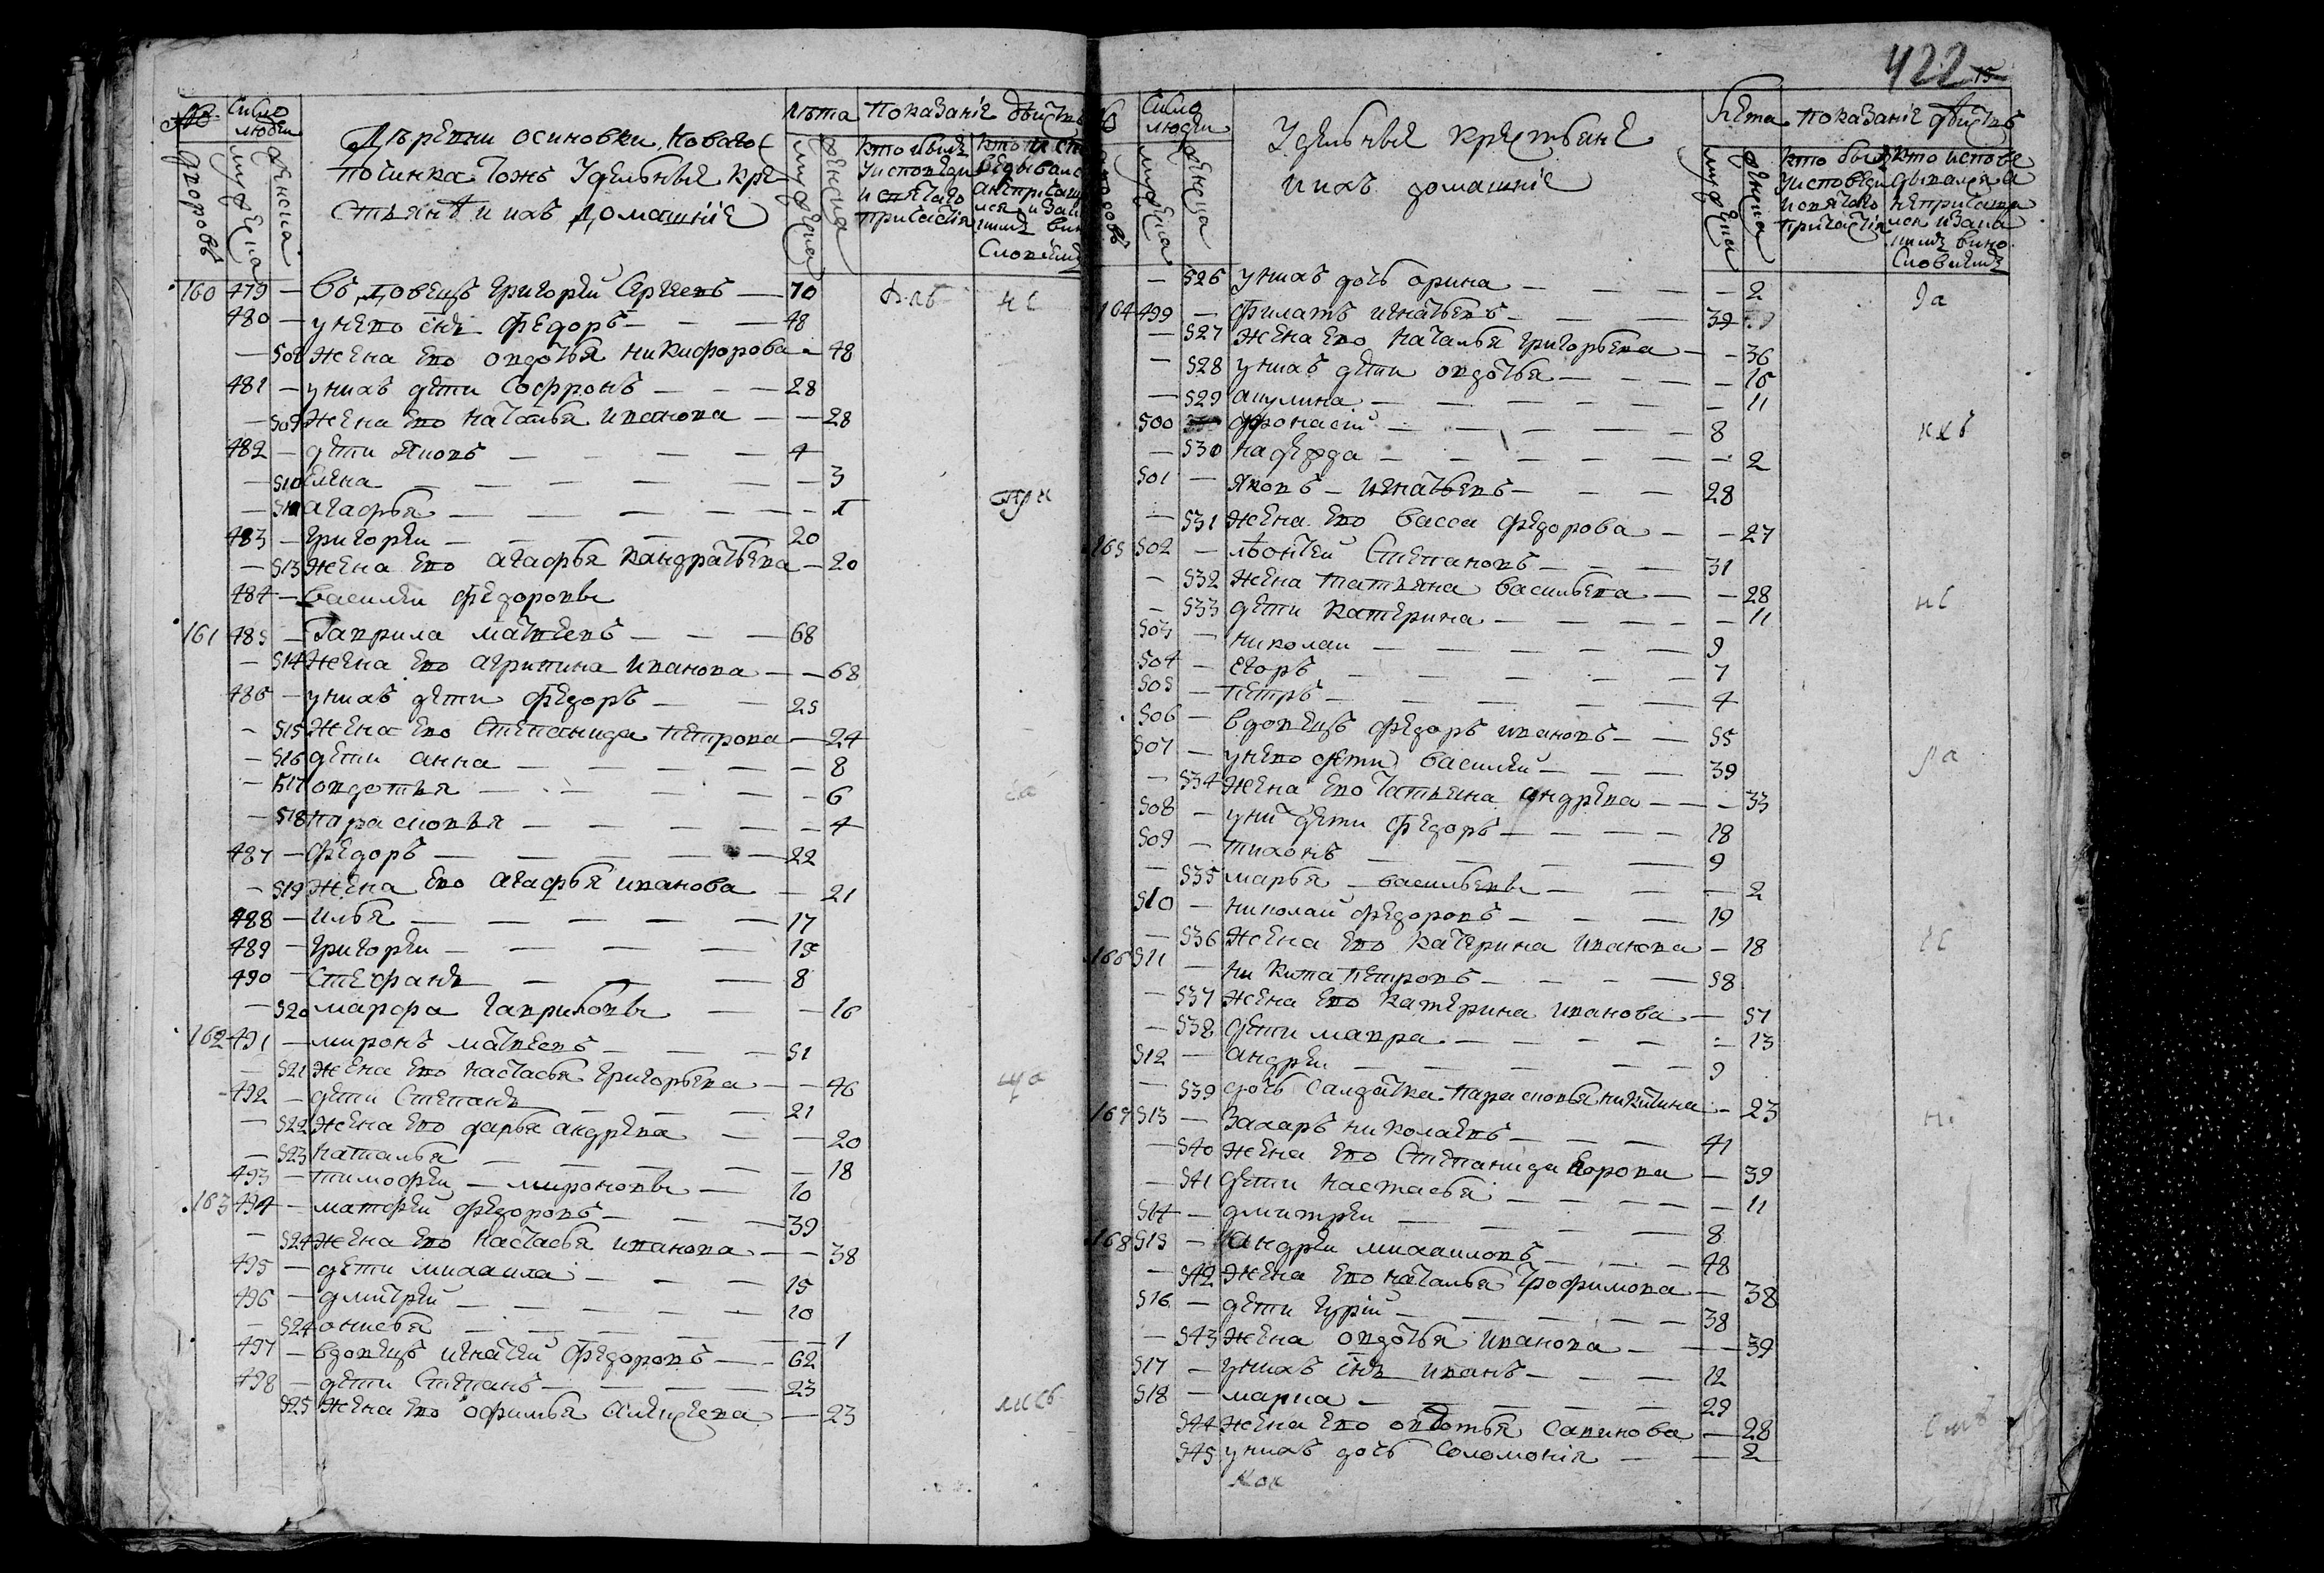 422
№ дворовъ
Число людей
мужеска
женска
Деревни осиновки Новаго
починка тожъ Удельныя кре
стьянѣ и ихъ домашніе
лѣта
мужеска
женска
показаніе действъ
кто былъ
у исповеди
и святаго
причастія
160 479 — вдовецъ григорей Сергеевъ — 70
480 — у него снъ федоръ — 48
— 508 жена его овдотья никифорова — 48
481 — у нихъ дети Софронъ — 28
— 509 жена его наталья иванова — 28
482 — дети яковъ — 4
— 510 елена — 3
— агафья — 1
483 — григореи — 20
— 513 жена его агафья кандратьева — 20
484 — василеи федоровы
161 485 — Гаврила матвеевъ — 68
— 514 жена его агрипина иванова — 68
486 — у нихъ дети федоръ — 25
— 515 жена его степанида петрова — 24
— 516 дети анна — 8
— 517 овдотья — 6
— 518 парасковья — 4
487 — федоръ — 22
— 519 жена его агафья иванова — 21
488 — илья — 17
489 — григореи — 15
490 — стефанъ — 8
— 520 марфа гавриловы — 16
162 491 — миронъ матвеевъ — 51
— 521 жена его настасья григорьева — 46
492 — дети степанъ — 21
— 522 жена его дарья андрева — 20
— 523 наталья — 18
493 — тимофеи — мироновы — 10
163 494 — матфеи федоровъ — 39
— 524 жена его настасья иванова — 38
495 — дети михаила — 15
496 — дмитреи — 10
— 524 онисья — 1
497 — вдовецъ игнатеи федоровъ — 62
498 — дети степанъ — 23
525 жена его офимья алексеева — 23
Число людеи
мужеска
женска
Удельныя крестьяне
и ихъ домашніе
лета
мужеска
женска
показаніе действъ
кто былъ
у исповеди
и святаго
причастія
кто испове
дывался а
не причаща
лся и за ка
кимъ вино
словіемъ
— 526 у нихъ дочь орина — 2
164 499 — филатъ игнатьевъ — 39
— 527 жена его наталья григорьева — 36
— 528 у нихъ дети овдотья — 15
— 529 акулина — 11
500 афонасіи — 8
— 530 надежда — 2
501 — яковъ — игнатьевъ — 28
— 531 жена его васса федорова — 27
165 502 — леонтеи степановъ — 31
— 532 жена татьяна васильева — 28
— 533 дети катерина — 11
503 — николаи — 9
504 — егоръ — 7
505 — петръ — 4
506 — вдовецъ федоръ ивановъ — 55
507 — у него дети василеи — 39
— 534 жена его татьяна андрева — 33
508 — у нихъ дети федоръ — 18
509 — тихонъ — 9
— 535 марья — васильевы — 2
510 — николаи федоровъ — 19
— 536 жена его катерина иванова — 18
166 511 — никита петровъ — 58
— 537 жена его катерина иванова — 57
— 538 дети мавра — 13
512 — андреи — 9
— 539 дочь салдатка парасковья никитина — 23
167 513 — захаръ николаевъ — 41
— 540 жена его степанида — 39
— 541 дети настасья — 11
514 — дмитреи — 8
168 515 — андреи михаиловъ — 48
— 542 жена его наталья трофимова — 38
516 — дети гуріи — 38
— 543 жена овдотья иванова — 39
517 — у нихъ снъ иванъ — 12
518 — марка — 29
544 жена его овдотья савинова — 28
545 у нихъ дочь соломонія — 2